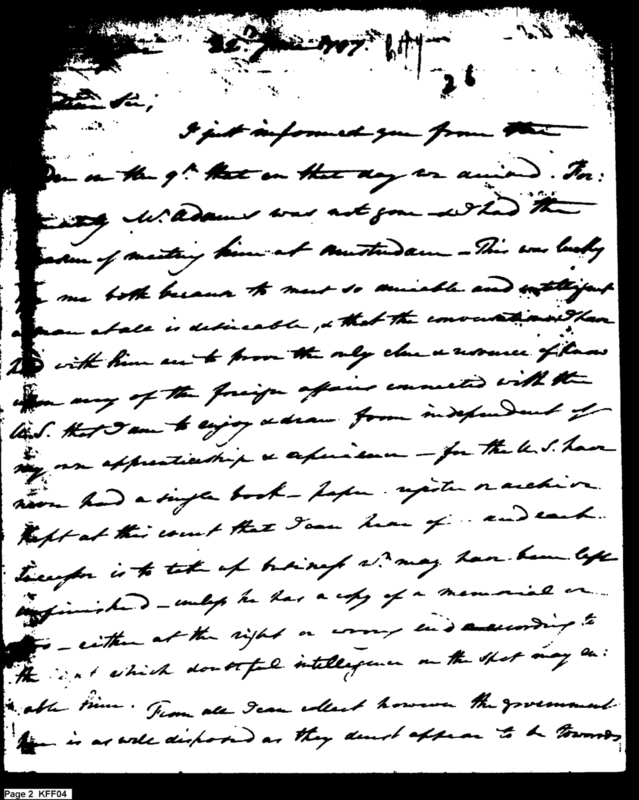 22d June 1797.
26
Dear Sir;
I just informed you from the
on the 9th that on that day we arrived. For:
Mr. Adams was not gone & I had the
of meeting him at Amsterdam — This was lucky
me both because to meet so amiable and intelligent
a man at all is desireable, & that the conversations I have
had with him are to prove the only clue & source of know
upon any of the foreign affairs connected with the
U.S. that I am to enjoy & draw from independent of
my own apprenticeship & experience — for the U.S. have
never had a single book — paper register or archive
kept at this court that I can hear of .. and each
successor is to take up business wh. may have been left
unfinished — unless he has a copy of a memorial or
— either at the right or wrong end according to
the which doubtful intelligence on the spot may en:
able him. From all I can collect however the government
here is as well disposed as they durst appear to be towards
Page 2 KFF04